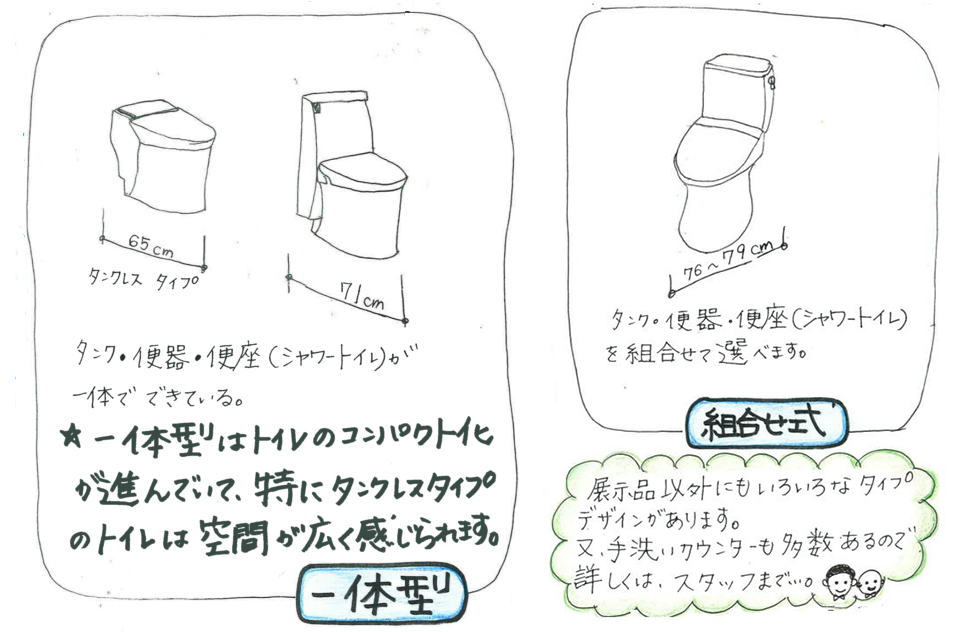 65cm
タンクレス タイプ
71cm
タンク・便器・便座(シャワートイレ)が
一体で できている。
★一体型はトイレのコンパクト化
が進んでいて、特にタンクレスタイプ
のトイレは空間が広く感じられます。
一体型
76~79cm
タンク・便器・便座(シャワートイレ)
を組合せて選べます。
組合せ式
展示品以外にもいろいろなタイプ
デザインがあります。
又、手洗いカウンターも多数あるので
詳しくは、スタッフまで…。